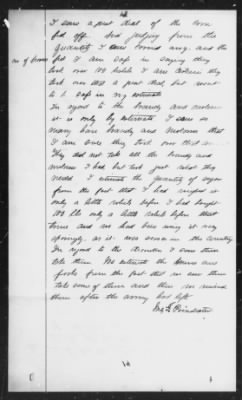 I saw a great deal of the corn
fed off. And judging from the
quantity I saw corned away. and the
fed I am safe in saying they
took over 100 bushels I am certain they
took over a great deal, but want
to be safe in my estimate
In regard to the brandy and molasses
it is only by estimate. I saw so
many have brandy and molasses that
I am sure they took over this a
They did not take all the brandy and
molasses I had but took just what they
needed. I estimate the quantity of sugar
from the fact that I had weighed it
only a little while before I had bought
only a little while before that
time and we had been using it very
sparingly, as it was scarce in the country
In regard to the I saw them
take them. The estimate the
from the fact that we saw them
take some of them and then we missed
them after the army had left
Poindexter